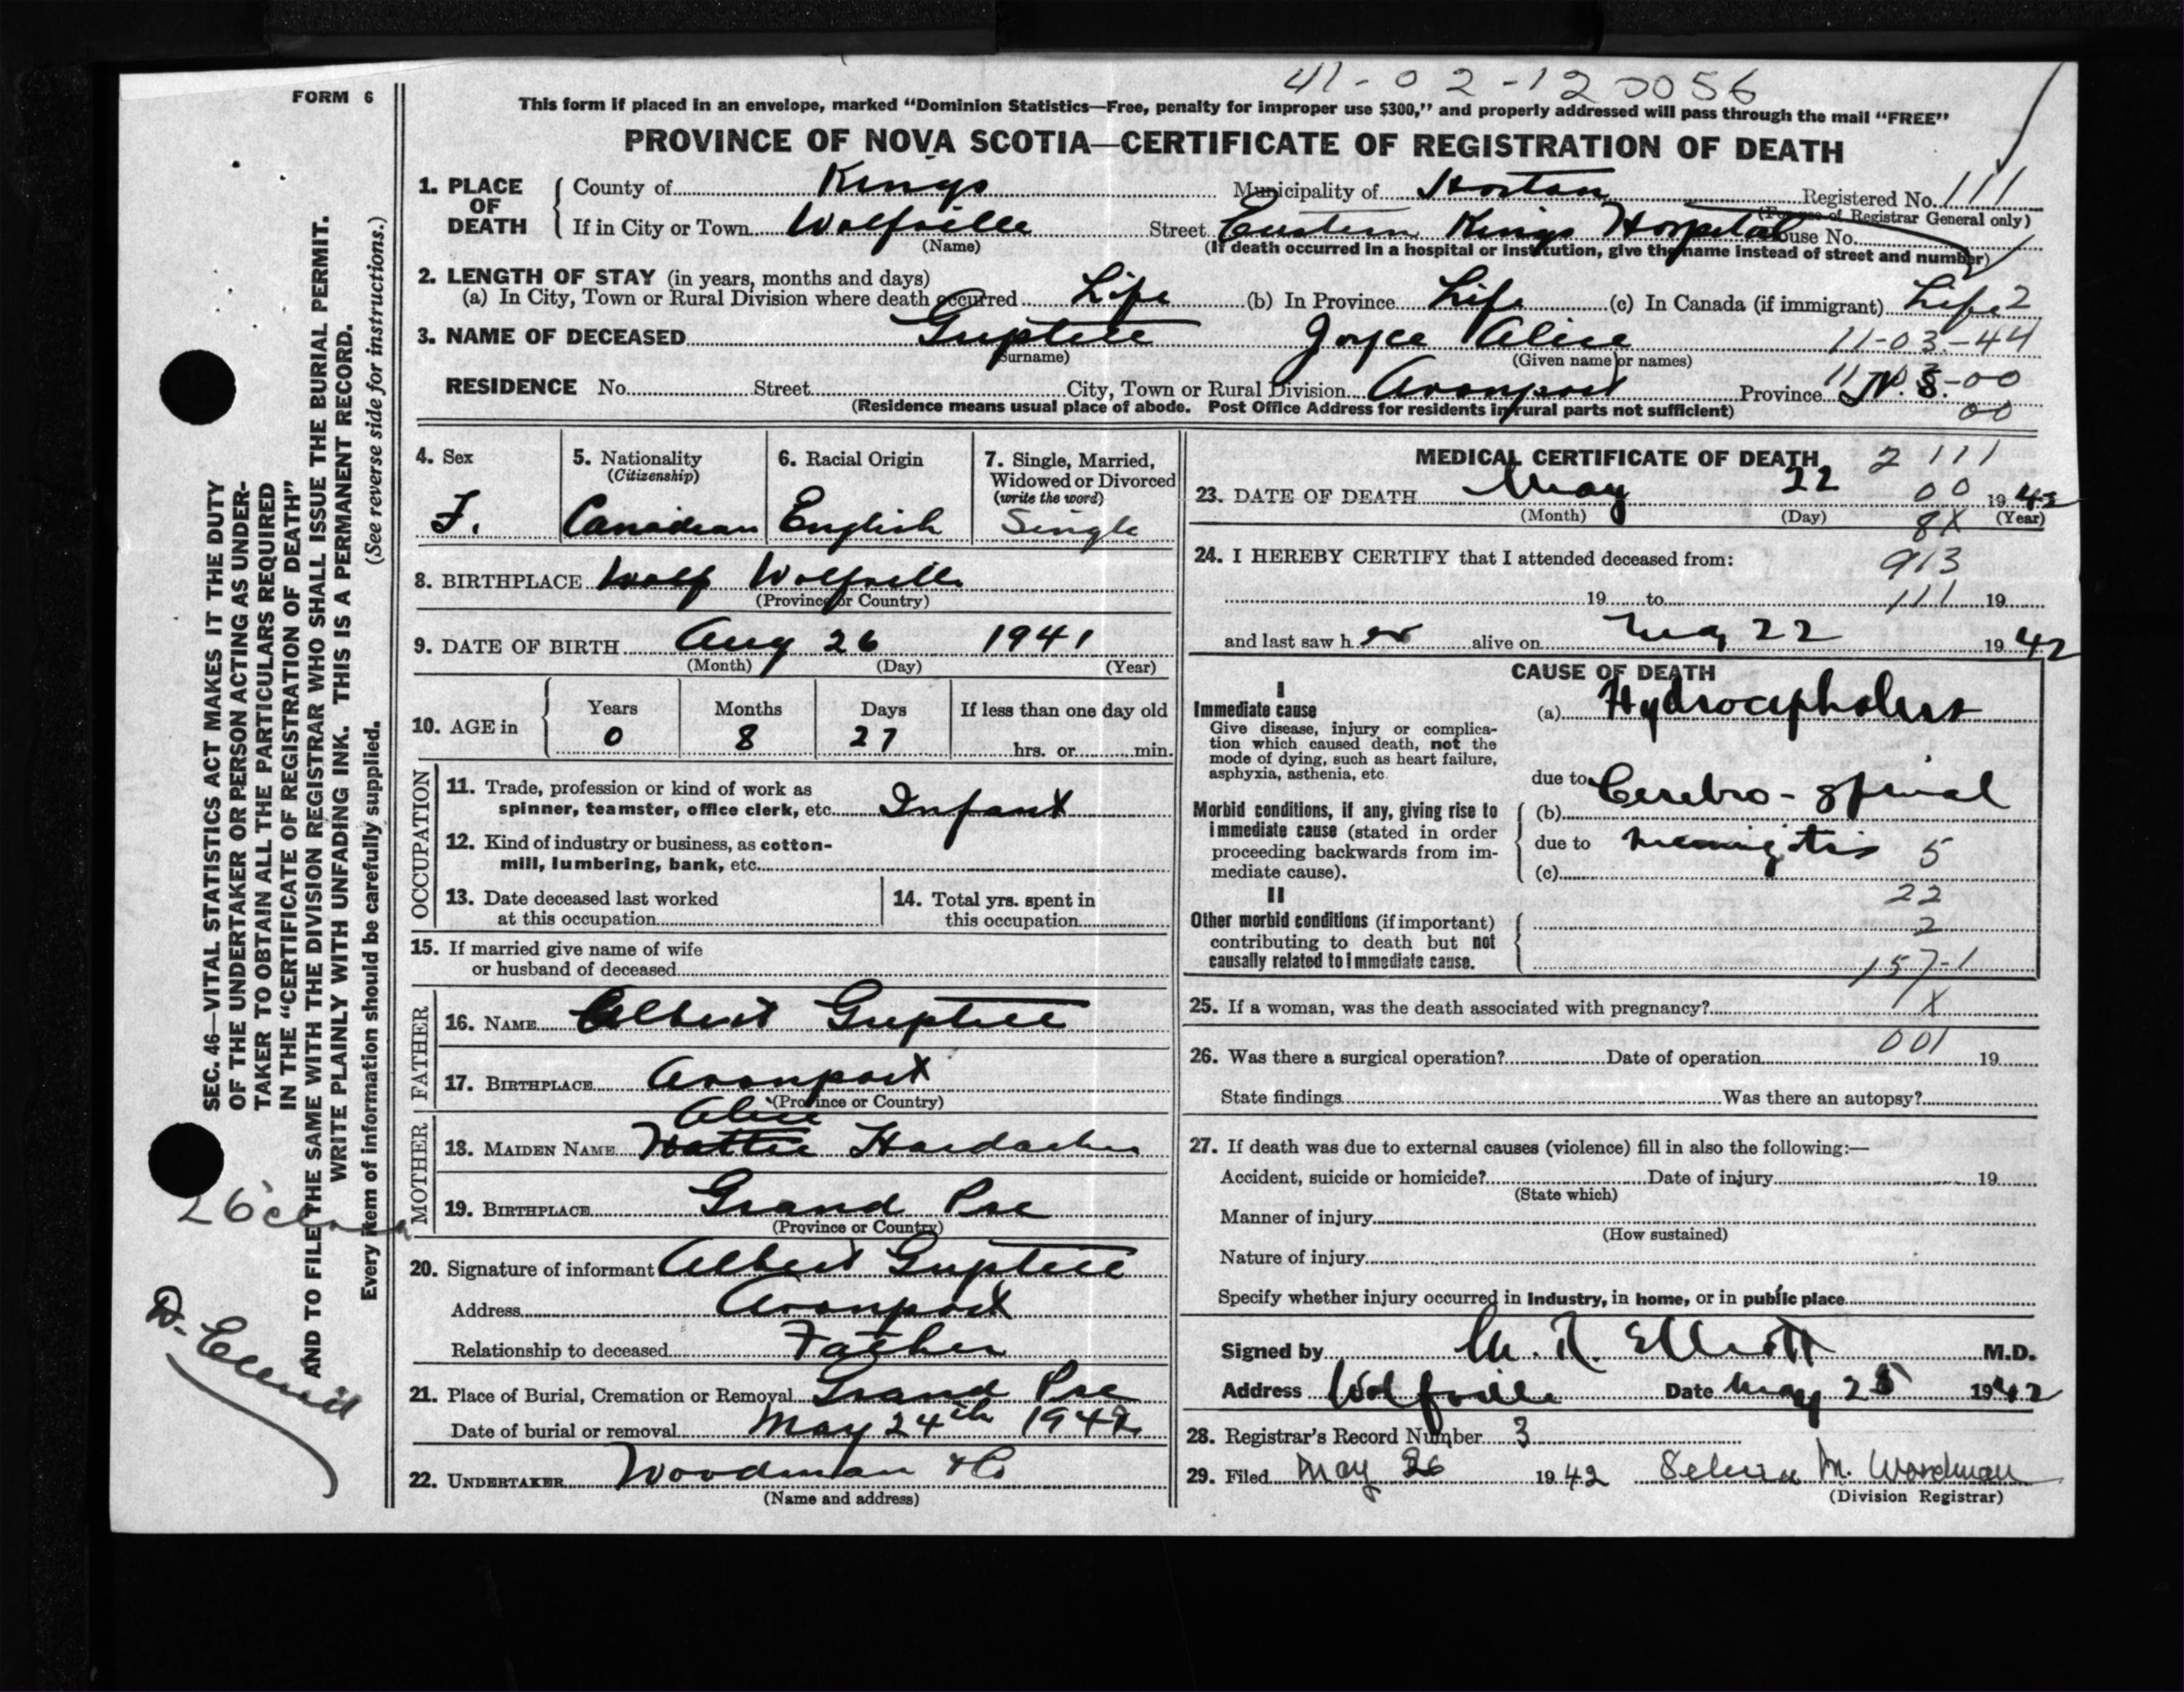 41-02-120056
FORM 6
This form if placed in an envelope, marked "Dominion Statistics—Free, penalty for improper use $300," and properly addressed will pass through the mail "FREE"
PROVINCE OF NOVA SCOTIA—CERTIFICATE OF REGISTRATION OF DEATH
1. PLACE OF DEATH County of Kings Municipality of Horton Registered No. 111
(For use of Registrar General only)
If in City or Town Wolfville Street Eastern Kings Hospital House No.
(Name) (If death occurred in a hospital or institution, give the name instead of street and number)
2. LENGTH OF STAY (in years, months and days)
(a) In City, Town or Rural Division where death occurred Life (b) In Province Life (c) In Canada (if immigrant) Life 2
3. NAME OF DECEASED Guptill Joyce Alice 11-03-44
(Surname) (Given name or names)
RESIDENCE No. Street City, Town or Rural Division Avonport Province N.S. 11-03-00
(Residence means usual place of abode. Post Office Address for residents in rural parts not sufficient) 00
4. Sex 5. Nationality 6. Racial Origin 7. Single, Married,
(Citizenship) Widowed or Divorced
(write the word)
F. Canadian English Single
8. BIRTHPLACE Wolf Wolfville
(Province or Country)
9. DATE OF BIRTH Aug 26 1941
(Month) (Day) (Year)
10. AGE in Years Months Days If less than one day old
0 8 27 hrs. or min.
OCCUPATION
11. Trade, profession or kind of work as
spinner, teamster, office clerk, etc. Infant
12. Kind of industry or business, as cotton-
mill, lumbering, bank, etc.
13. Date deceased last worked
at this occupation
14. Total yrs. spent in
this occupation
15. If married give name of wife
or husband of deceased
FATHER
16. NAME Albert Guptill
17. BIRTHPLACE Avonport
(Province or Country)
MOTHER
Alice
18. MAIDEN NAME Hattie Hardacker
19. BIRTHPLACE Grand Pre
(Province or Country)
20. Signature of informant Albert Guptill
Address Avonport
Relationship to deceased Father
21. Place of Burial, Cremation or Removal Grand Pre
Date of burial or removal May 24th 1942
22. UNDERTAKER Woodman & Co
(Name and address)
MEDICAL CERTIFICATE OF DEATH 2 111
23. DATE OF DEATH May 22 00 1942
(Month) (Day) 8X (Year)
24. I HEREBY CERTIFY that I attended deceased from: 913
19 to 111 19
and last saw her alive on May 22 1942
CAUSE OF DEATH
I
Immediate cause (a) Hydrocephalus
Give disease, injury or complica-
tion which caused death, not the
mode of dying, such as heart failure,
asphyxia, asthenia, etc.
due to Cerebro-spinal
Morbid conditions, if any, giving rise to (b)
immediate cause (stated in order due to meningitis 5
proceeding backwards from im-
mediate cause). (c)
22
II
Other morbid conditions (if important) 2
contributing to death but not
causally related to immediate cause. 157-1
25. If a woman, was the death associated with pregnancy? X
26. Was there a surgical operation? Date of operation 001 19
State findings Was there an autopsy?
27. If death was due to external causes (violence) fill in also the following:—
Accident, suicide or homicide? Date of injury 19
(State which)
Manner of injury
(How sustained)
Nature of injury
Specify whether injury occurred in industry, in home, or in public place
Signed by M. R. Elliott M.D.
Address Wolfville Date May 25 1942
28. Registrar's Record Number 3
29. Filed May 26 1942 M. Woodman
(Division Registrar)
SEC. 46—VITAL STATISTICS ACT MAKES IT THE DUTY
OF THE UNDERTAKER OR PERSON ACTING AS UNDER-
TAKER TO OBTAIN ALL THE PARTICULARS REQUIRED
IN THE "CERTIFICATE OF REGISTRATION OF DEATH"
AND TO FILE THE SAME WITH THE DIVISION REGISTRAR WHO SHALL ISSUE THE BURIAL PERMIT.
WRITE PLAINLY WITH UNFADING INK. THIS IS A PERMANENT RECORD.
Every item of information should be carefully supplied. (See reverse side for instructions.)